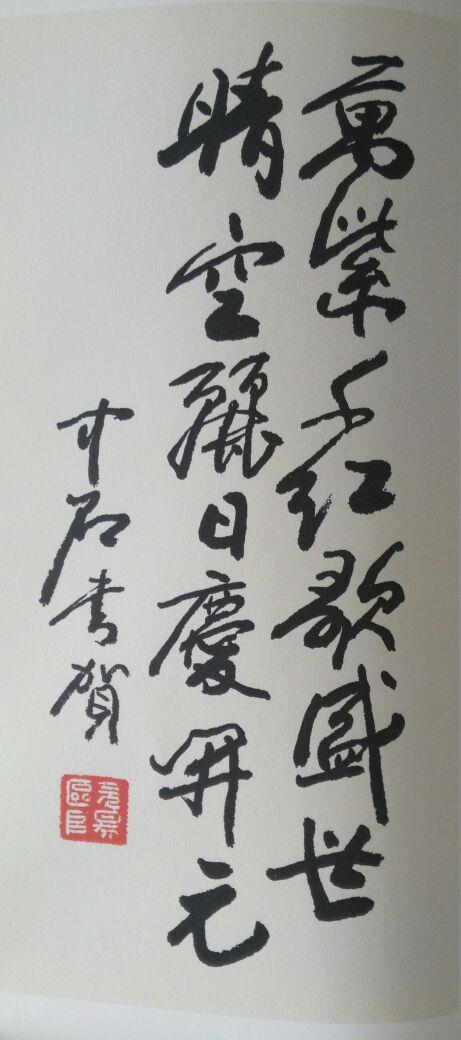 萬紫千红歌盛世
晴空麗日慶開元
中石書賀